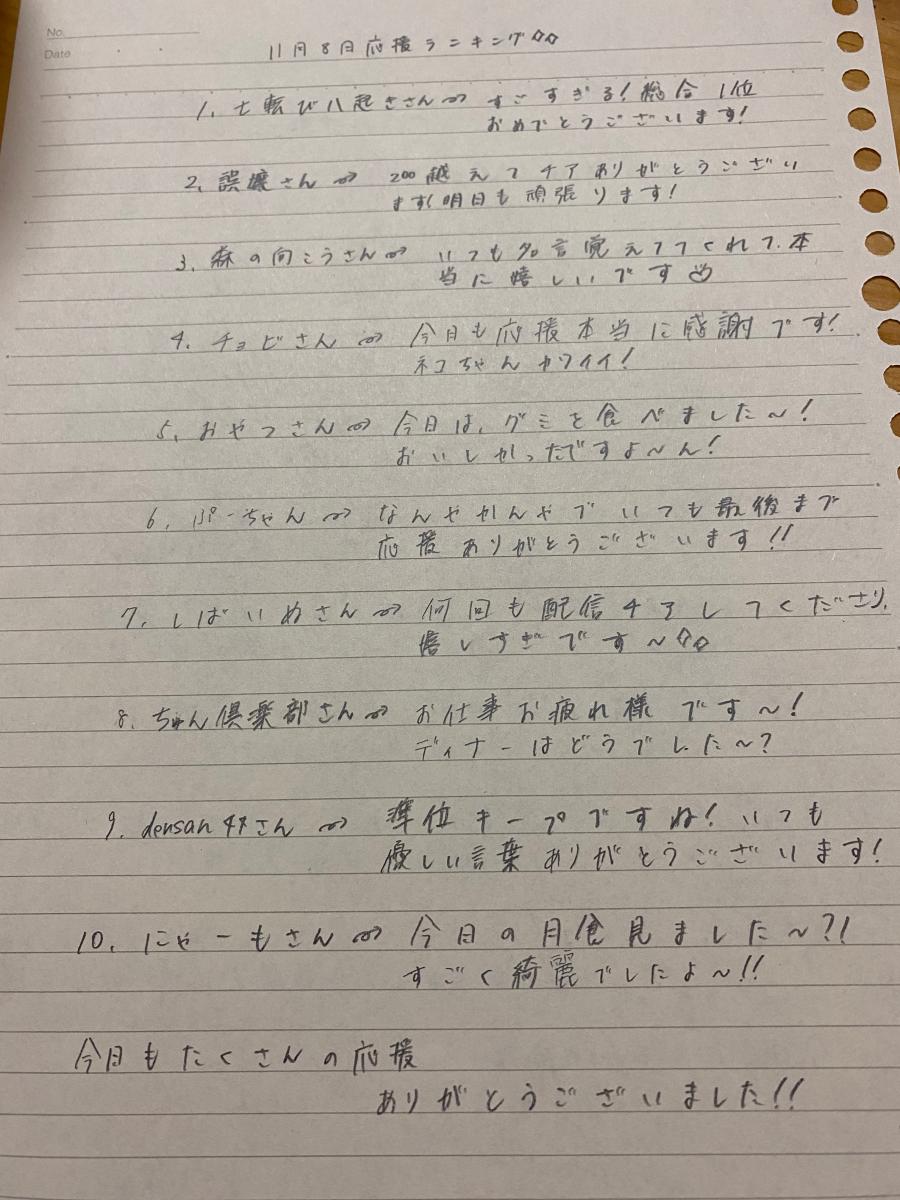 No.
Date
11月8日応援ランキング
1. 七転び八起きさん⇝ すごすぎる!総合1位
おめでとうございます!
2. 誤爆さん⇝ 200越えてチアありがとうござい
ます!明日も頑張ります!
3. 森の向こうさん⇝ いつも名言覚えててくれて、本
当に嬉しいです
4. チョビさん⇝ 今日も応援本当に感謝です!
ネコちゃんカワイイ!
5. おやつさん⇝ 今日は、グミを食べました〜!
おいしかったですよ〜ん!
6. ぷーちゃん⇝ なんやかんやでいつも最後まで
応援ありがとうございます!!
7. しばいぬさん⇝ 何回も配信チアしてくださり、
嬉しすぎです〜
8. ちゅん倶楽部さん⇝ お仕事お疲れ様です〜!
ディナーはどうでした〜?
9. densanさん⇝ 準位キープですね!いつも
優しい言葉ありがとうございます!
10. にゃーもさん⇝ 今日の月食見ました〜?!
すごく綺麗でしたよ〜!!
今日もたくさんの応援
ありがとうございました!!